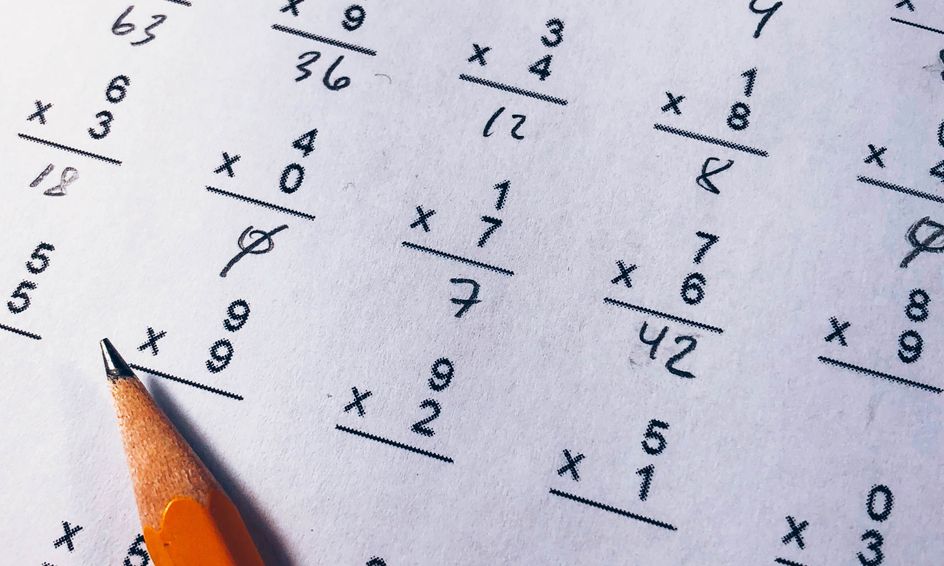 63
× 9
36
3
× 4
12
4
6
× 3
18
4
× 0
0
1
× 7
7
1
× 8
8
7
× 6
42
5
5
9
× 9
9
× 2
5
× 1
8
× 9
0
× 3
×
5
×
0